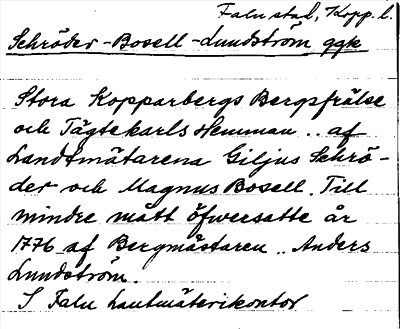 Falu stad, Kopp. l.
Schröder-Bosell-Lundström ggk
Stora Kopparbergs Bergsfrälse
och Tägtekarls Hemman .. af
Landtmätarena Giljus Schrö-
der och Magnus Bosell. Till
mindre mått öfwersatte år
1776 af Bergmästaren .. Anders
Lundström.
I Falu Lantmäterikontor